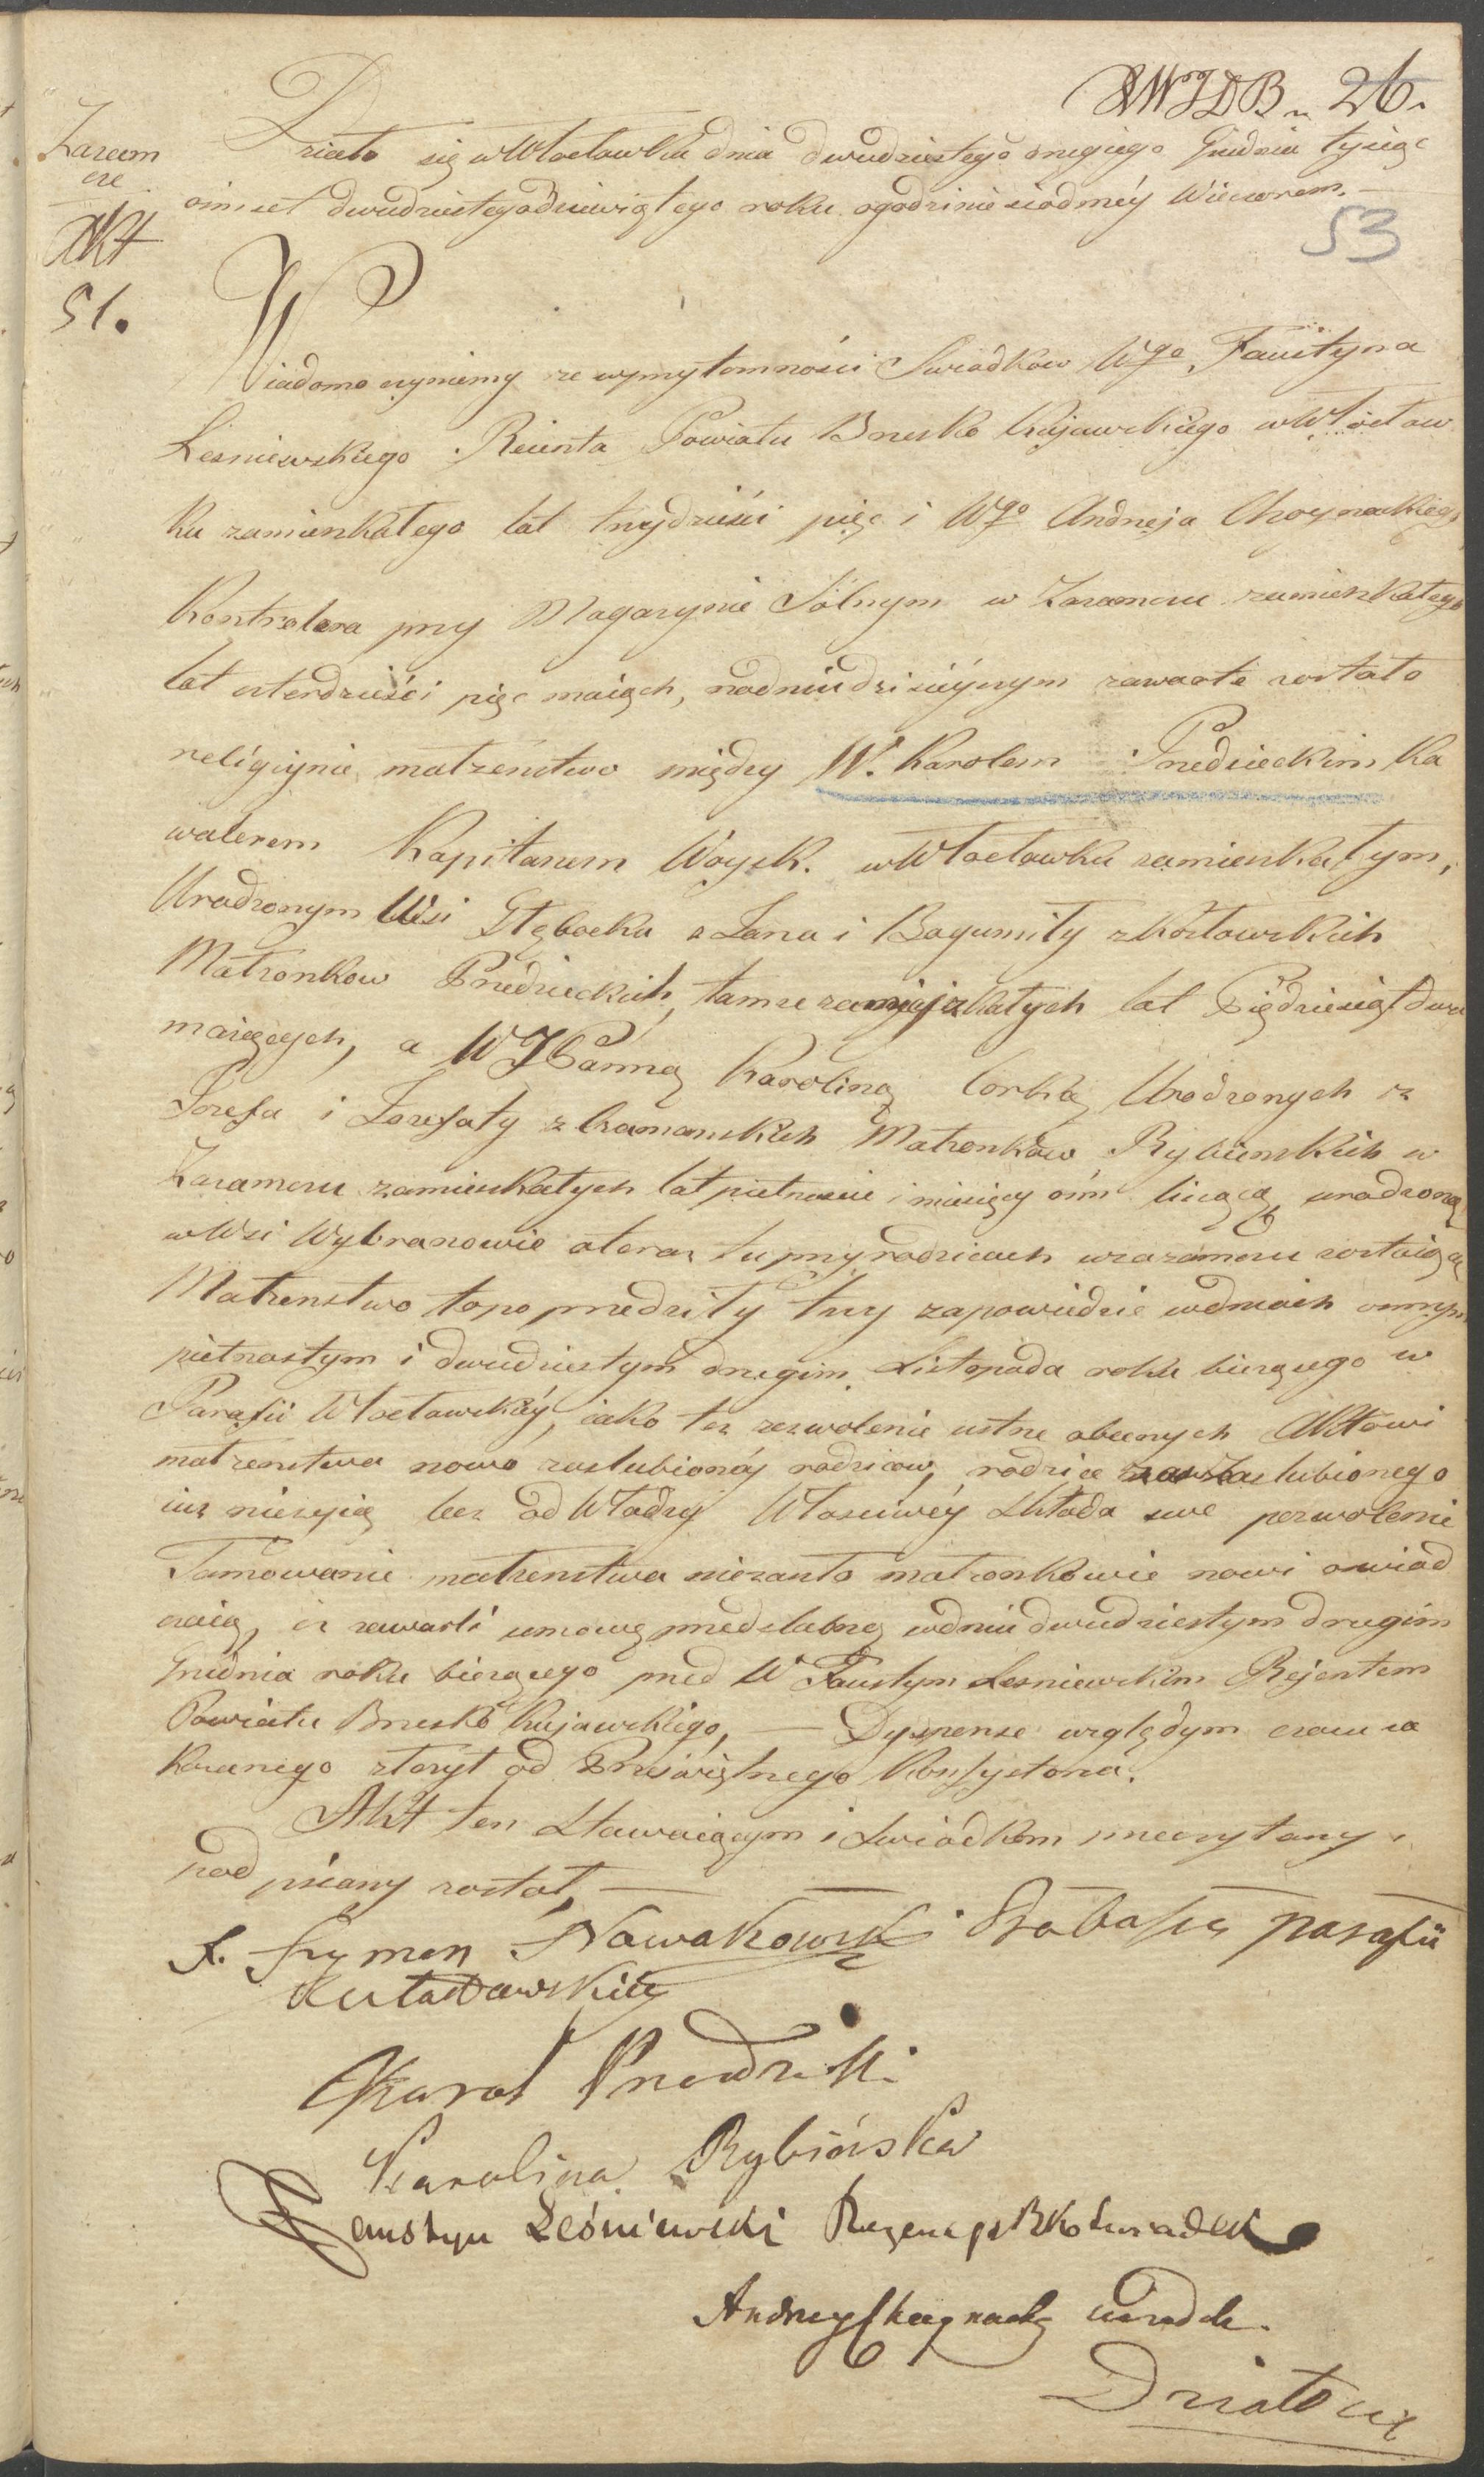 26.
Zazam
cze
Akt
51.
53
Działo się w Włocławku dnia dwudziestego drugiego Grudnia tysiąc
ośmset dwudziestego dziewiątego roku o godzinie siodméy Wieczorem.
Wiadomo czyniemy ze w przytomności Swiadkow Wgo Faustyna
Lesniewskiego Reienta Powiatu Brzesko Kujawskiego w Włocław
ku zamieszkałego lat trzydzieści pięć i Wgo Andrzeja Choynackiego
Kontrolera przy Magazynie Solnym w Zazamczu zamieszkałego
lat czterdzieści pięć maiących, na dniu dzisiéyszym zawarte zostało
religiynie małzenstwo między W. Karolem Przedzieckim Ka
walerem Kapitanem Woysk. w Włocławku zamieszkałym,
Urodzonym Wsi Głębocku z Jana i Bogumiły z Kozłowskich
Małzonkow Przedzieckich, tamze zamieszkałych lat Piędziesiąt dwa
maiących, a WJPanną Karoliną Corką Urodzonych
Jozefa i Jozefaty z Małzonkow Rybinskich w
Zazamczu zamieszkałych lat pietnascie i miesięcy ośm liczącą, urodzoną
w Wsi Wybranowie a teraz tu przy rodzicach w zazamczu zostaiącą
Małzenstwo to poprzedziły trzy zapowiedzie w dniach osmym
pietnastym i dwudziestym drugim Listopada roku bieżącego w
Parafii Włocławskiéy, iako tez zezwolenie ustne obecnych Aktowi
małzenstwa nowo zaslubionéy rodzicow, rodzice zaslubionego
iuz nieżyią lecz od Władzy Własciwéy składa swe pozwolenie
Tamowanie małzenstwa niezaszło małzonkowie nowi oswiad
czaią, iz zawarli umowę przedslubną w dniu dwudziestym drugim
Grudnia roku bieżącego przed W Faustym Lesniewskim Rejentem
Powiatu Brzesko Kujawskiego, — Dyspense względym czasu za
kazanego złozył od Przeświętnego Konsystorza.
Akt ten Stawaiącym i Swiadkom przeczytany i
podpisany został. —
X. Szymon Nowakowski parafii
Karol Przedziecki
Karolina Rybińska
Faustyn Leśniewski Swiadek
Andrzey Choynacki
Działo się